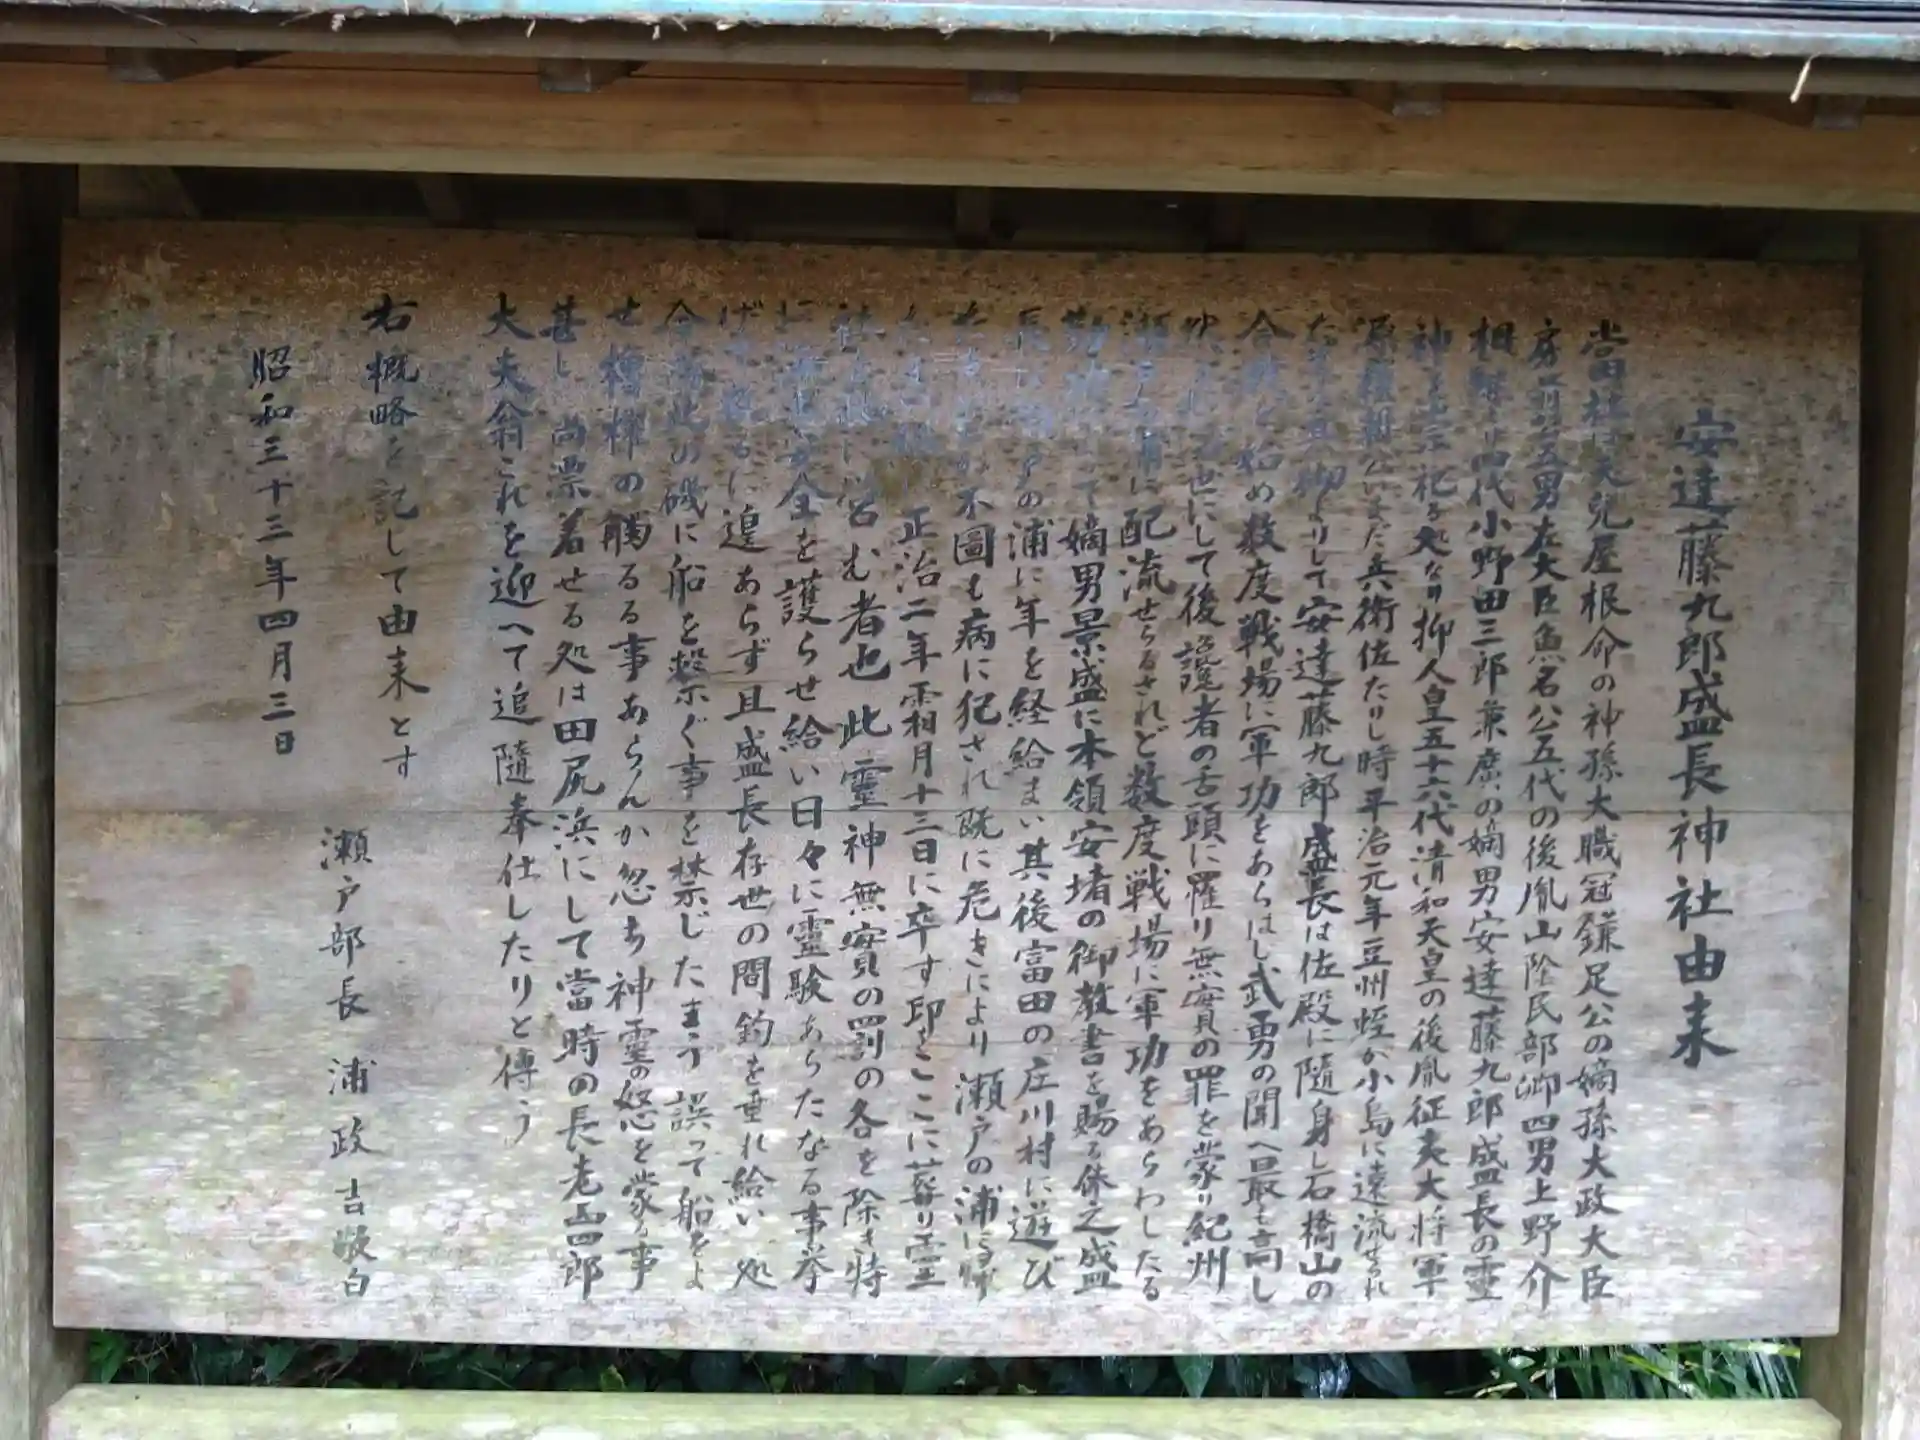 安達藤九郎盛長神社由来
當田社は天兒屋根命の神孫大職冠鎌足公の嫡孫大政大臣
房前五男左大臣魚名公五代の後胤山陰民部卿四男上野介
相継 四代小野田三郎兼廣の嫡男安達藤九郎盛長の霊
神を崇祀る処なり抑人皇五十六代清和天皇の後胤征夷大将軍
源頼朝公いまだ兵衛佐たりし時平治元年豆州蛭が小島に遠流せられ
よりして安達藤九郎盛長は佐殿に随身し石橋山の
合戦を始め数度戦場に軍功をあらはし武勇の聞へ最も高し
世にして後讒者の舌頭に罹り無實の罪を蒙り紀州
瀬戸 浦に配流せらるされど数度戦場に軍功をあらわしたる
勲功 て嫡男景盛に本領安堵の御教書を賜る依之盛
長 瀬戸の浦に年を経給まい其後富田の庄川村に遊び
不圖も病に犯され既に危きにより瀬戸の浦に帰
正治二年霜月十三日に卒す印をここに葬り霊
社 営む者也此霊神無實の罰の咎を除き特
に 安全を護らせ給い日々に霊験あらたなる事挙
げて に遑あらず且盛長存世の間釣を垂れ給い処
今 此の磯に船を繋ぐ事を禁じたまう誤って船をよ
せ櫓櫂の觸るる事あらんか忽ち神霊の怒を蒙る事
甚し尚漂着せる処は田尻浜にして當時の長老四郎
大夫翁これを迎へて追随奉仕したりと傳う
右概略を記して由来とす
瀬戸部長 浦政吉敬白
昭和三十三年四月三日